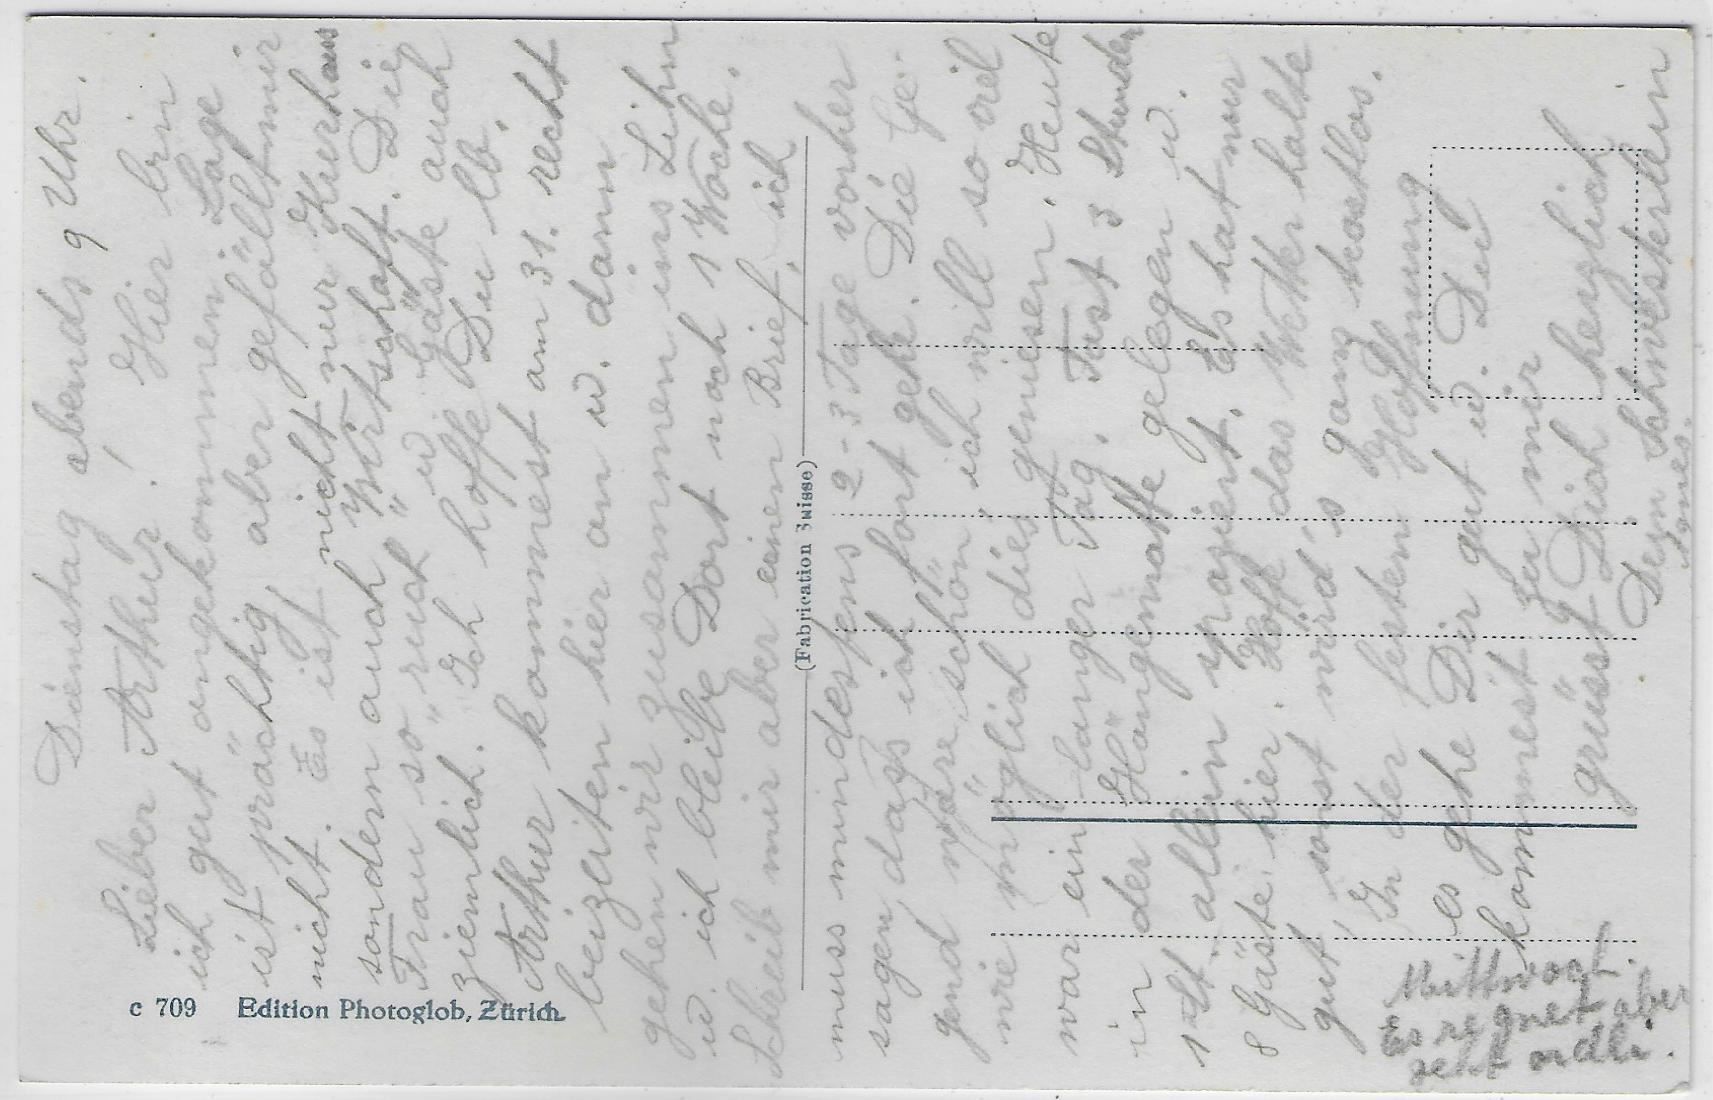 Dienstag abends 9 Uhr.
Lieber Arthur! Hier bin
ich gut angekommen. Lage
ist prächtig, aber gefällt mir
nicht. Es ist nicht nur Kurhaus
sondern auch Wirtschaft. Die
Frau so "ruch" u. Gäste auch
ziemlich. Ich hoffe Du lb.
Arthur kommest am 31. recht
beizeiten hier an u. dann
gehen wir zusammen ins Lihn
u. ich bleibe Dort noch 1 Woche.
Schreib mir aber einen Brief, ich
muss mindestens 2-3 Tage vorher
sagen, dass ich fort gehe. Die Ge-
gend wäre schön, ich will so viel
wie möglich dies geniesen. Heute
war ein langer Tag. Fast 3 Stunden
in der Hängematte gelegen u.
1 St. allein spaziert. Es hat nur
8 Gäste hier. Hoffe das Wetter halte
gut, sonst wird's ganz trostlos.
In der festen Hoffnung
es gehe Dir gut u. Du
kommest zu mir
grüsst Dich herzlich
Dein Schwesterlein
Agnes.
Mittwoch.
Es regnet aber
recht ordli.
(Fabrication Suisse)
c 709 Edition Photoglob, Zürich